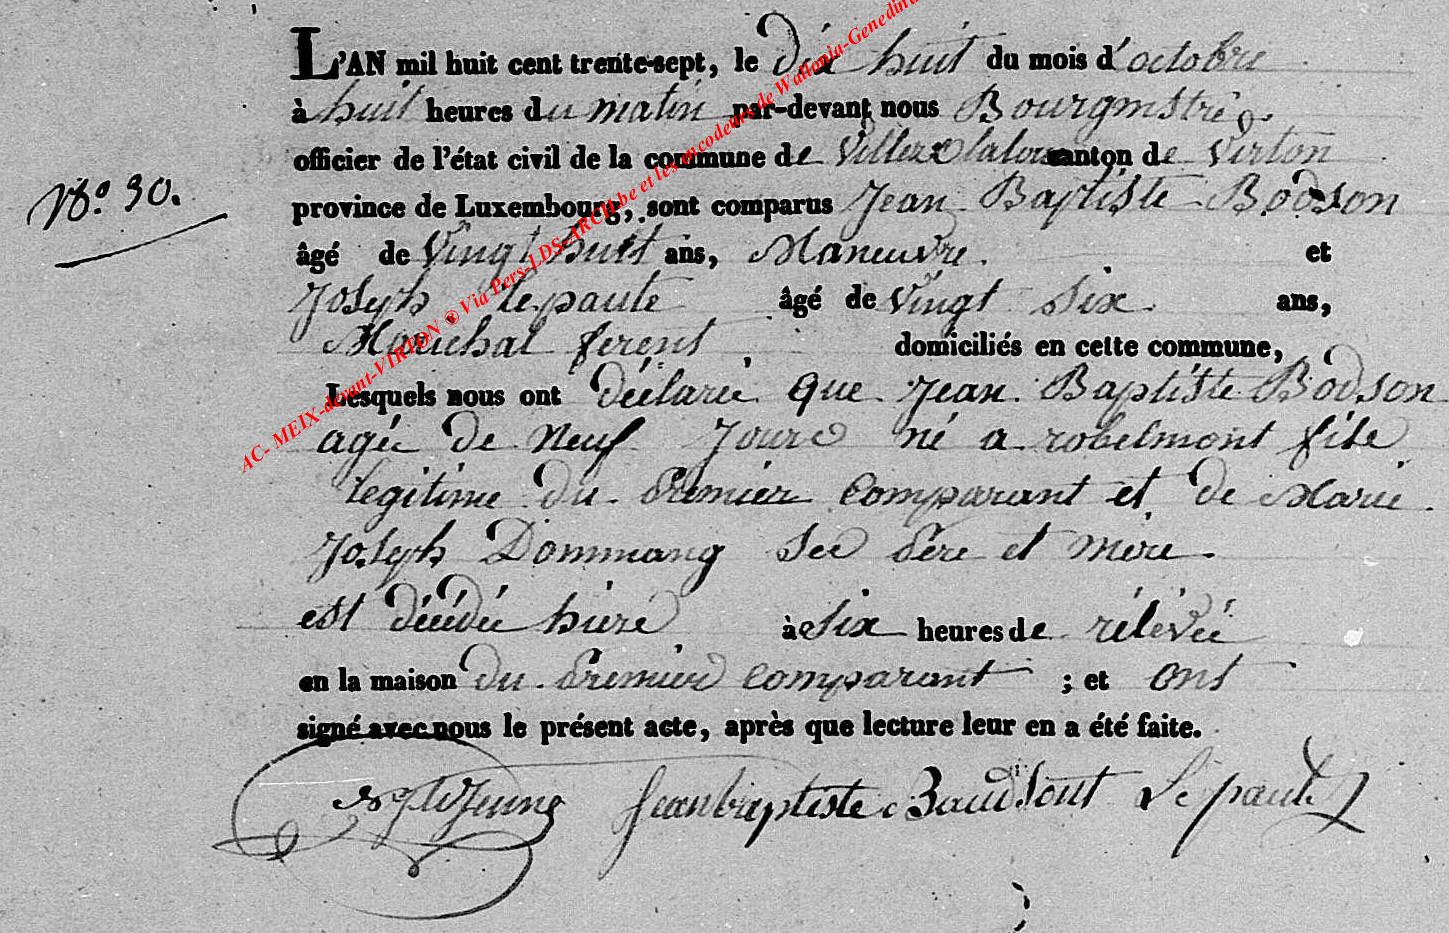 L'AN mil huit cent trente-sept, le dix huit du mois d'octobre
à huit heures du matin par-devant nous Bourgmstre
officier de l'état civil de la commune de Villers laloue canton de Virton
N.° 30.
province de Luxembourg, sont comparus Jean Baptiste Bodson
âgé de Vingt huit ans, Maneuvre et
Joseph lepaute âgé de vingt six ans,
Marichal ferent domiciliés en cette commune,
Lesquels nous ont déclaré que Jean Baptiste Bodson
agée de neuf Jours né a robelmont fils
legitime du premier comparant et de Marie
Joseph Dommang ses père et mère
est décédée hière à six heures de rélévée
en la maison du premier comparant ; et ont
signé avec nous le présent acte, après que lecture leur en a été faite.
Lejeune Jeanbaptiste Baudsont Lepaute
AC- MEIX-devant-VIRTON ® Via Pers-LDS-ARCH.be et les encodeurs de Wallonia-Genedinu